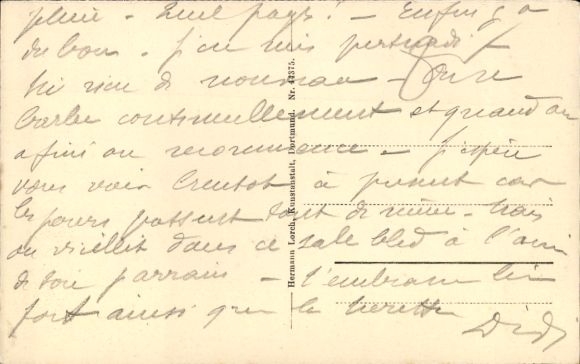 pluie - Quel pays! - Enfin ça a
du bon - j'en suis persuadé -
Ni rien de nouveau - On se
barbe continuellement et quand on
a fini on recommence - J'espère
vous voir bientôt à présent car
les jours passent tout de même - Mais
on vieillit dans ce sale bled à l'
de ton parrain - t'embrasse bien
fort ainsi que la
Didi
Hermann Lorch, Kunstanstalt, Dortmund. Nr. 42375.